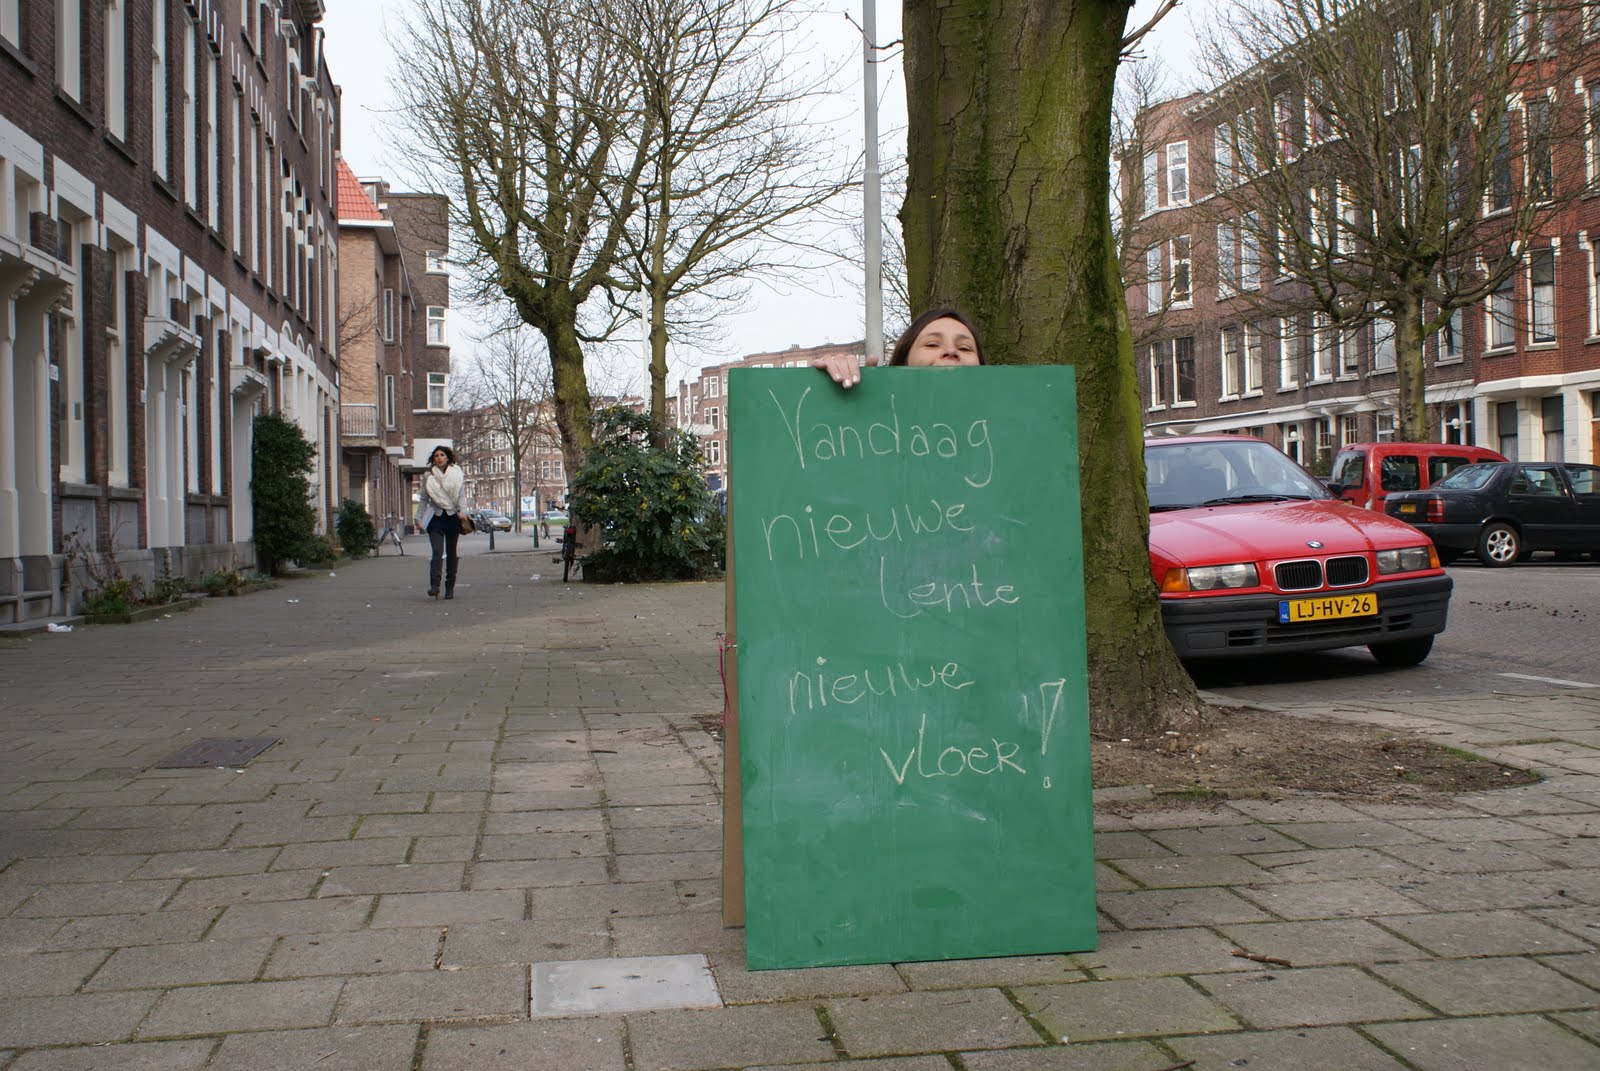 Vandaag
nieuwe
Lente
nieuwe
vloer!
NL LJ-HV-26